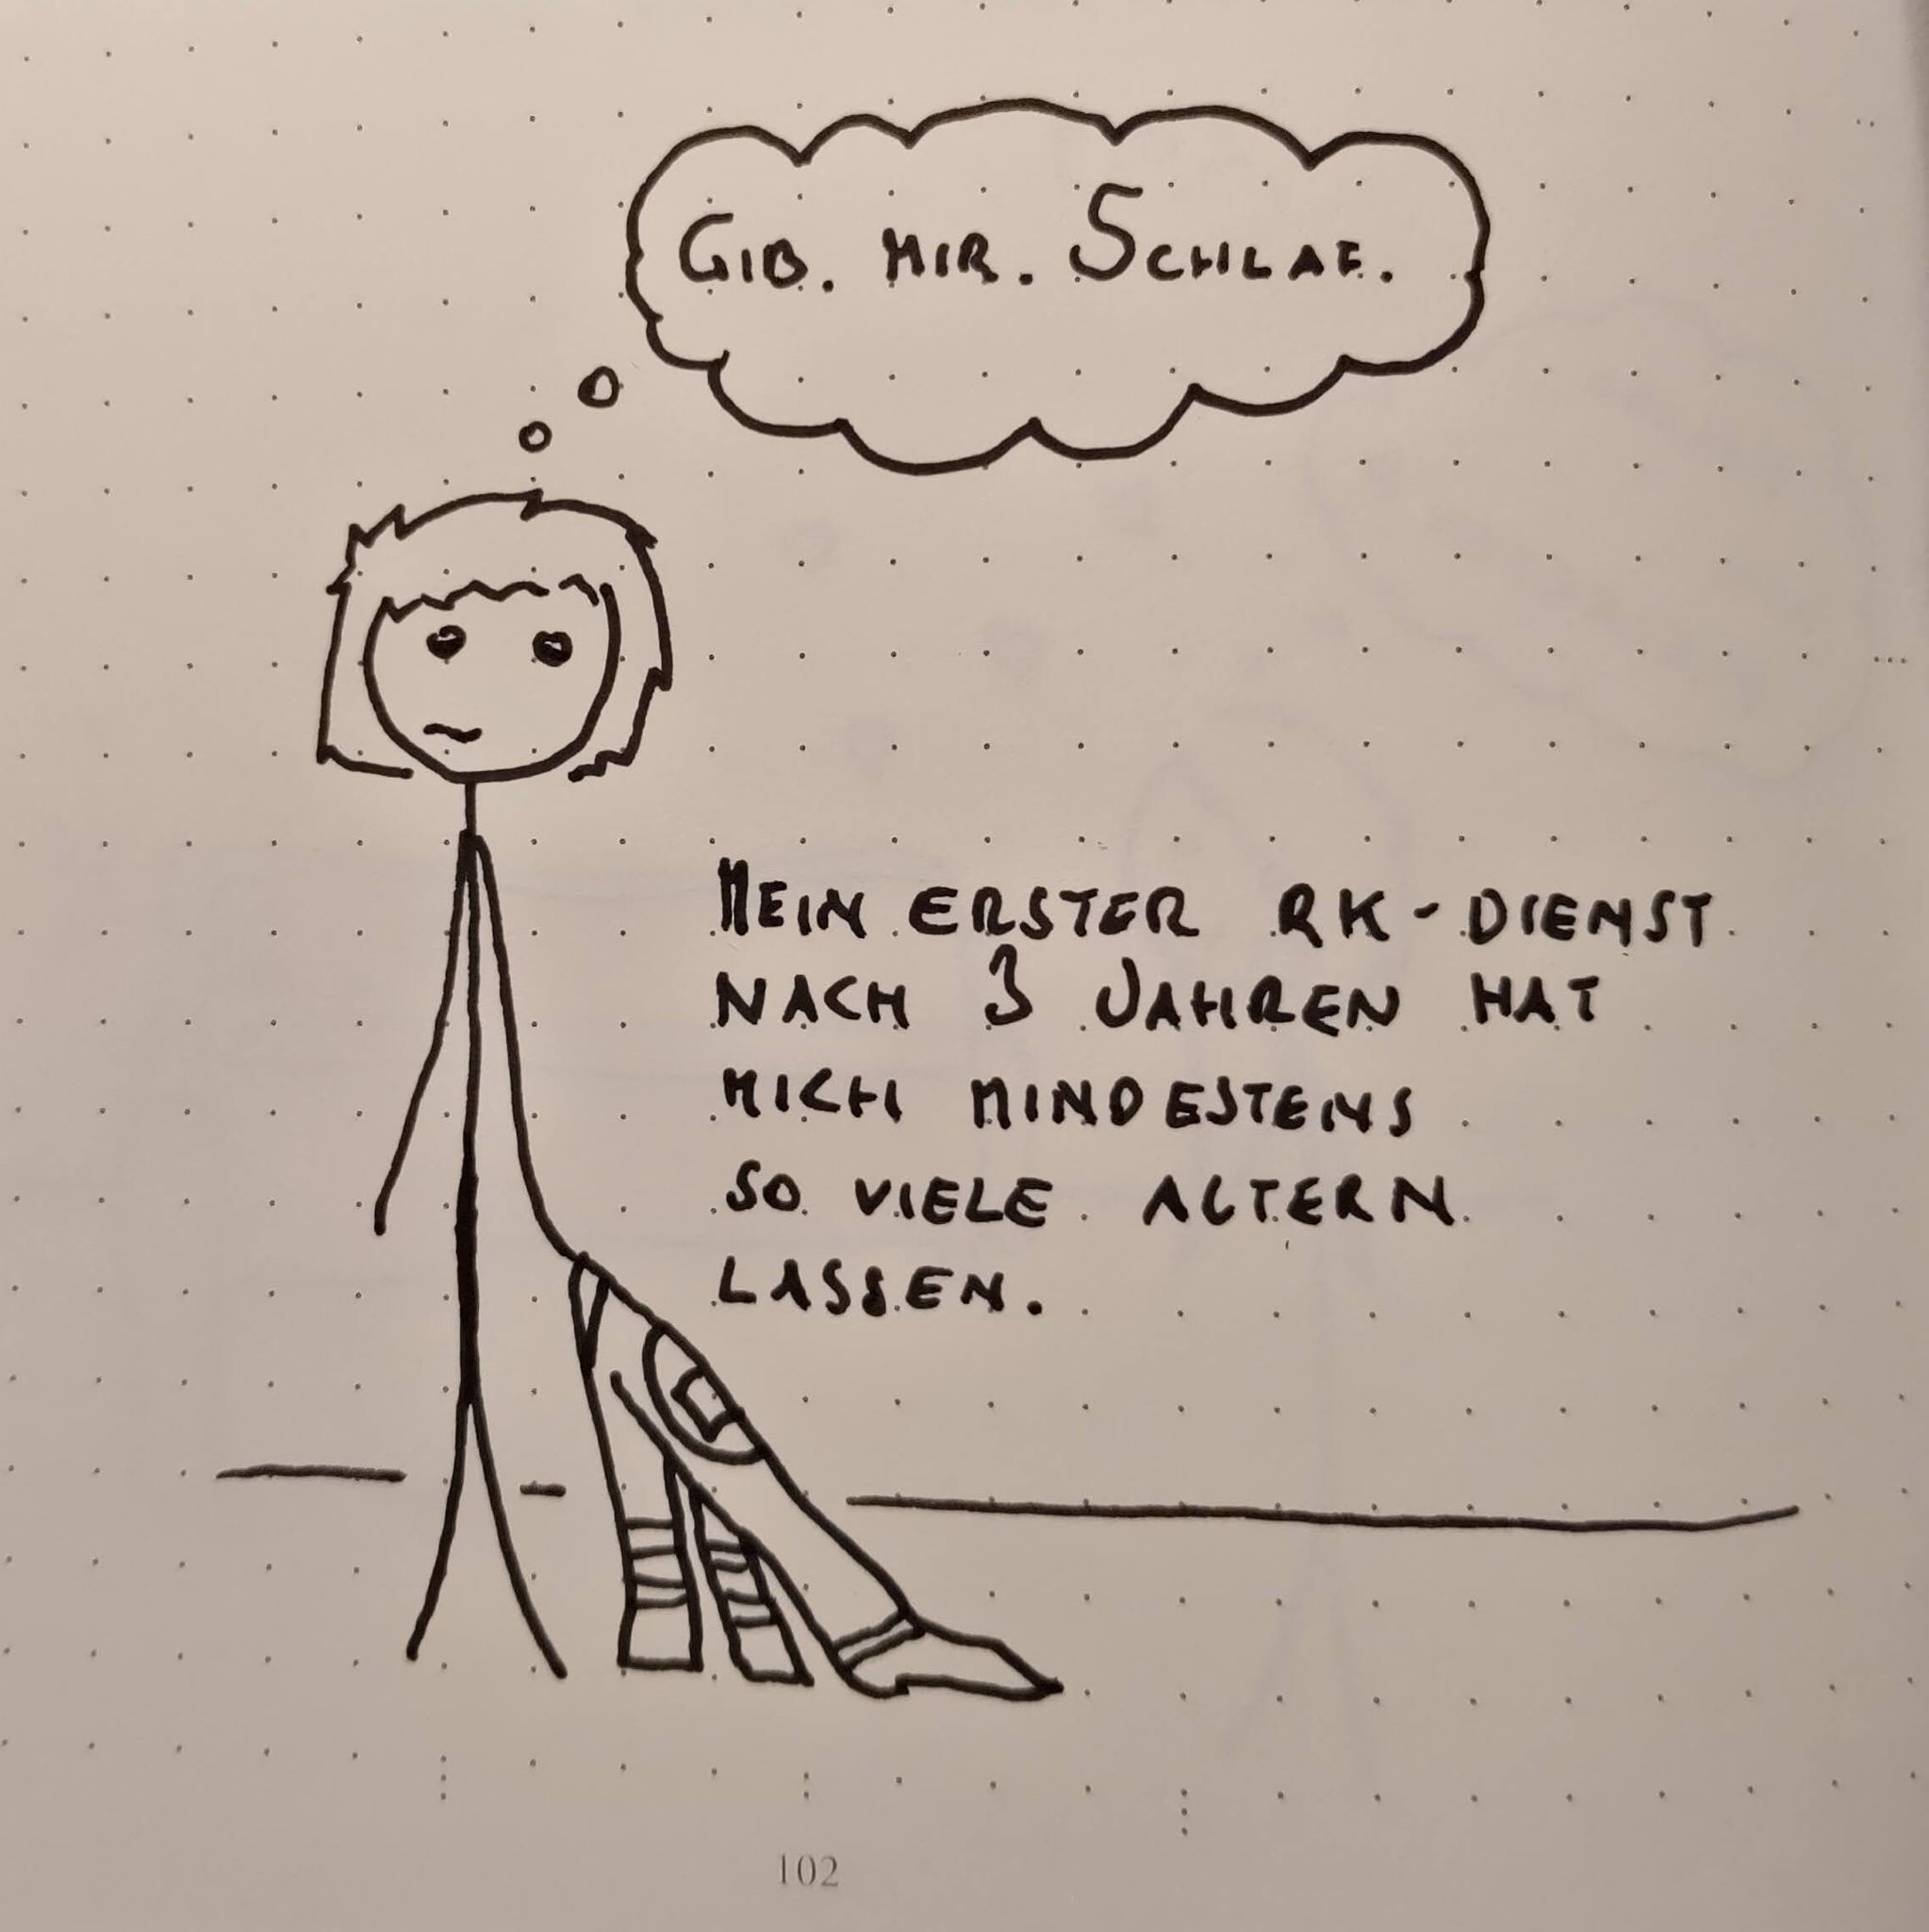 GIB. MIR. SCHLAF.
MEIN ERSTER RK-DIENST
NACH 3 JAHREN HAT
MICH MINDESTENS
SO VIELE ALTERN
LASSEN.
102